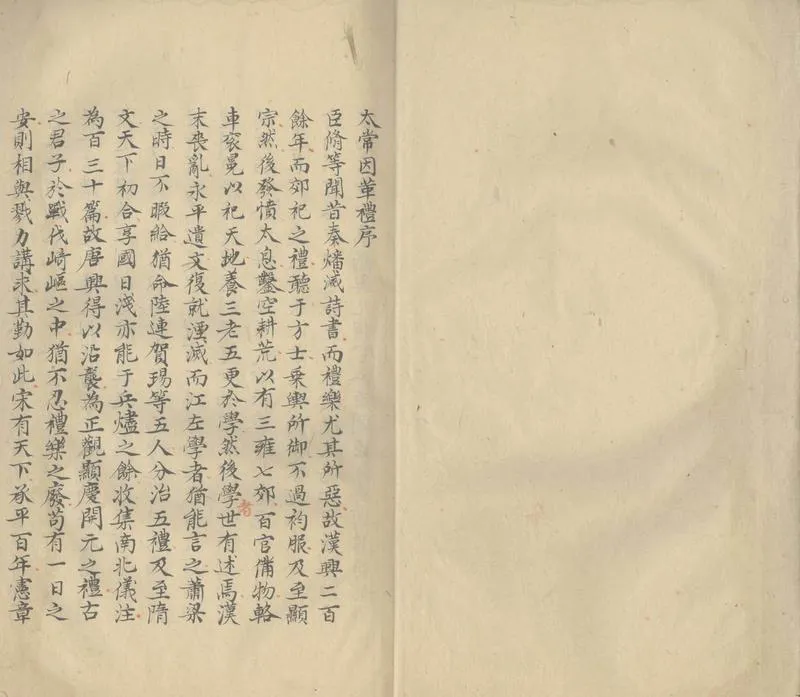 太常因革禮序
臣脩等聞昔秦燔滅詩書而禮樂尤其所惡故漢興二百
餘年而郊祀之禮聽于方士乗輿所御不過袀服及至顯
宗然後發憤太息鑿空耕荒以有三雍七郊百官備物輅
者
車衮冕以祀天地養三老五更於學然後學世有述焉漢
末喪亂永平遺文復就湮滅而江左學者猶能言之蕭梁
之時日不暇給猶命陸連賀瑒等五人分治五禮及至隋
文天下初合享國日淺亦能于兵燼之餘收集南北儀注
為百三十篇故唐興得以沿襲為正觀顯慶開元之禮古
之君子於戰伐崎嶇之中猶不忍禮樂之廢苟有一日之
安則相與戮力講求其勤如此宋有天下承平百年憲章